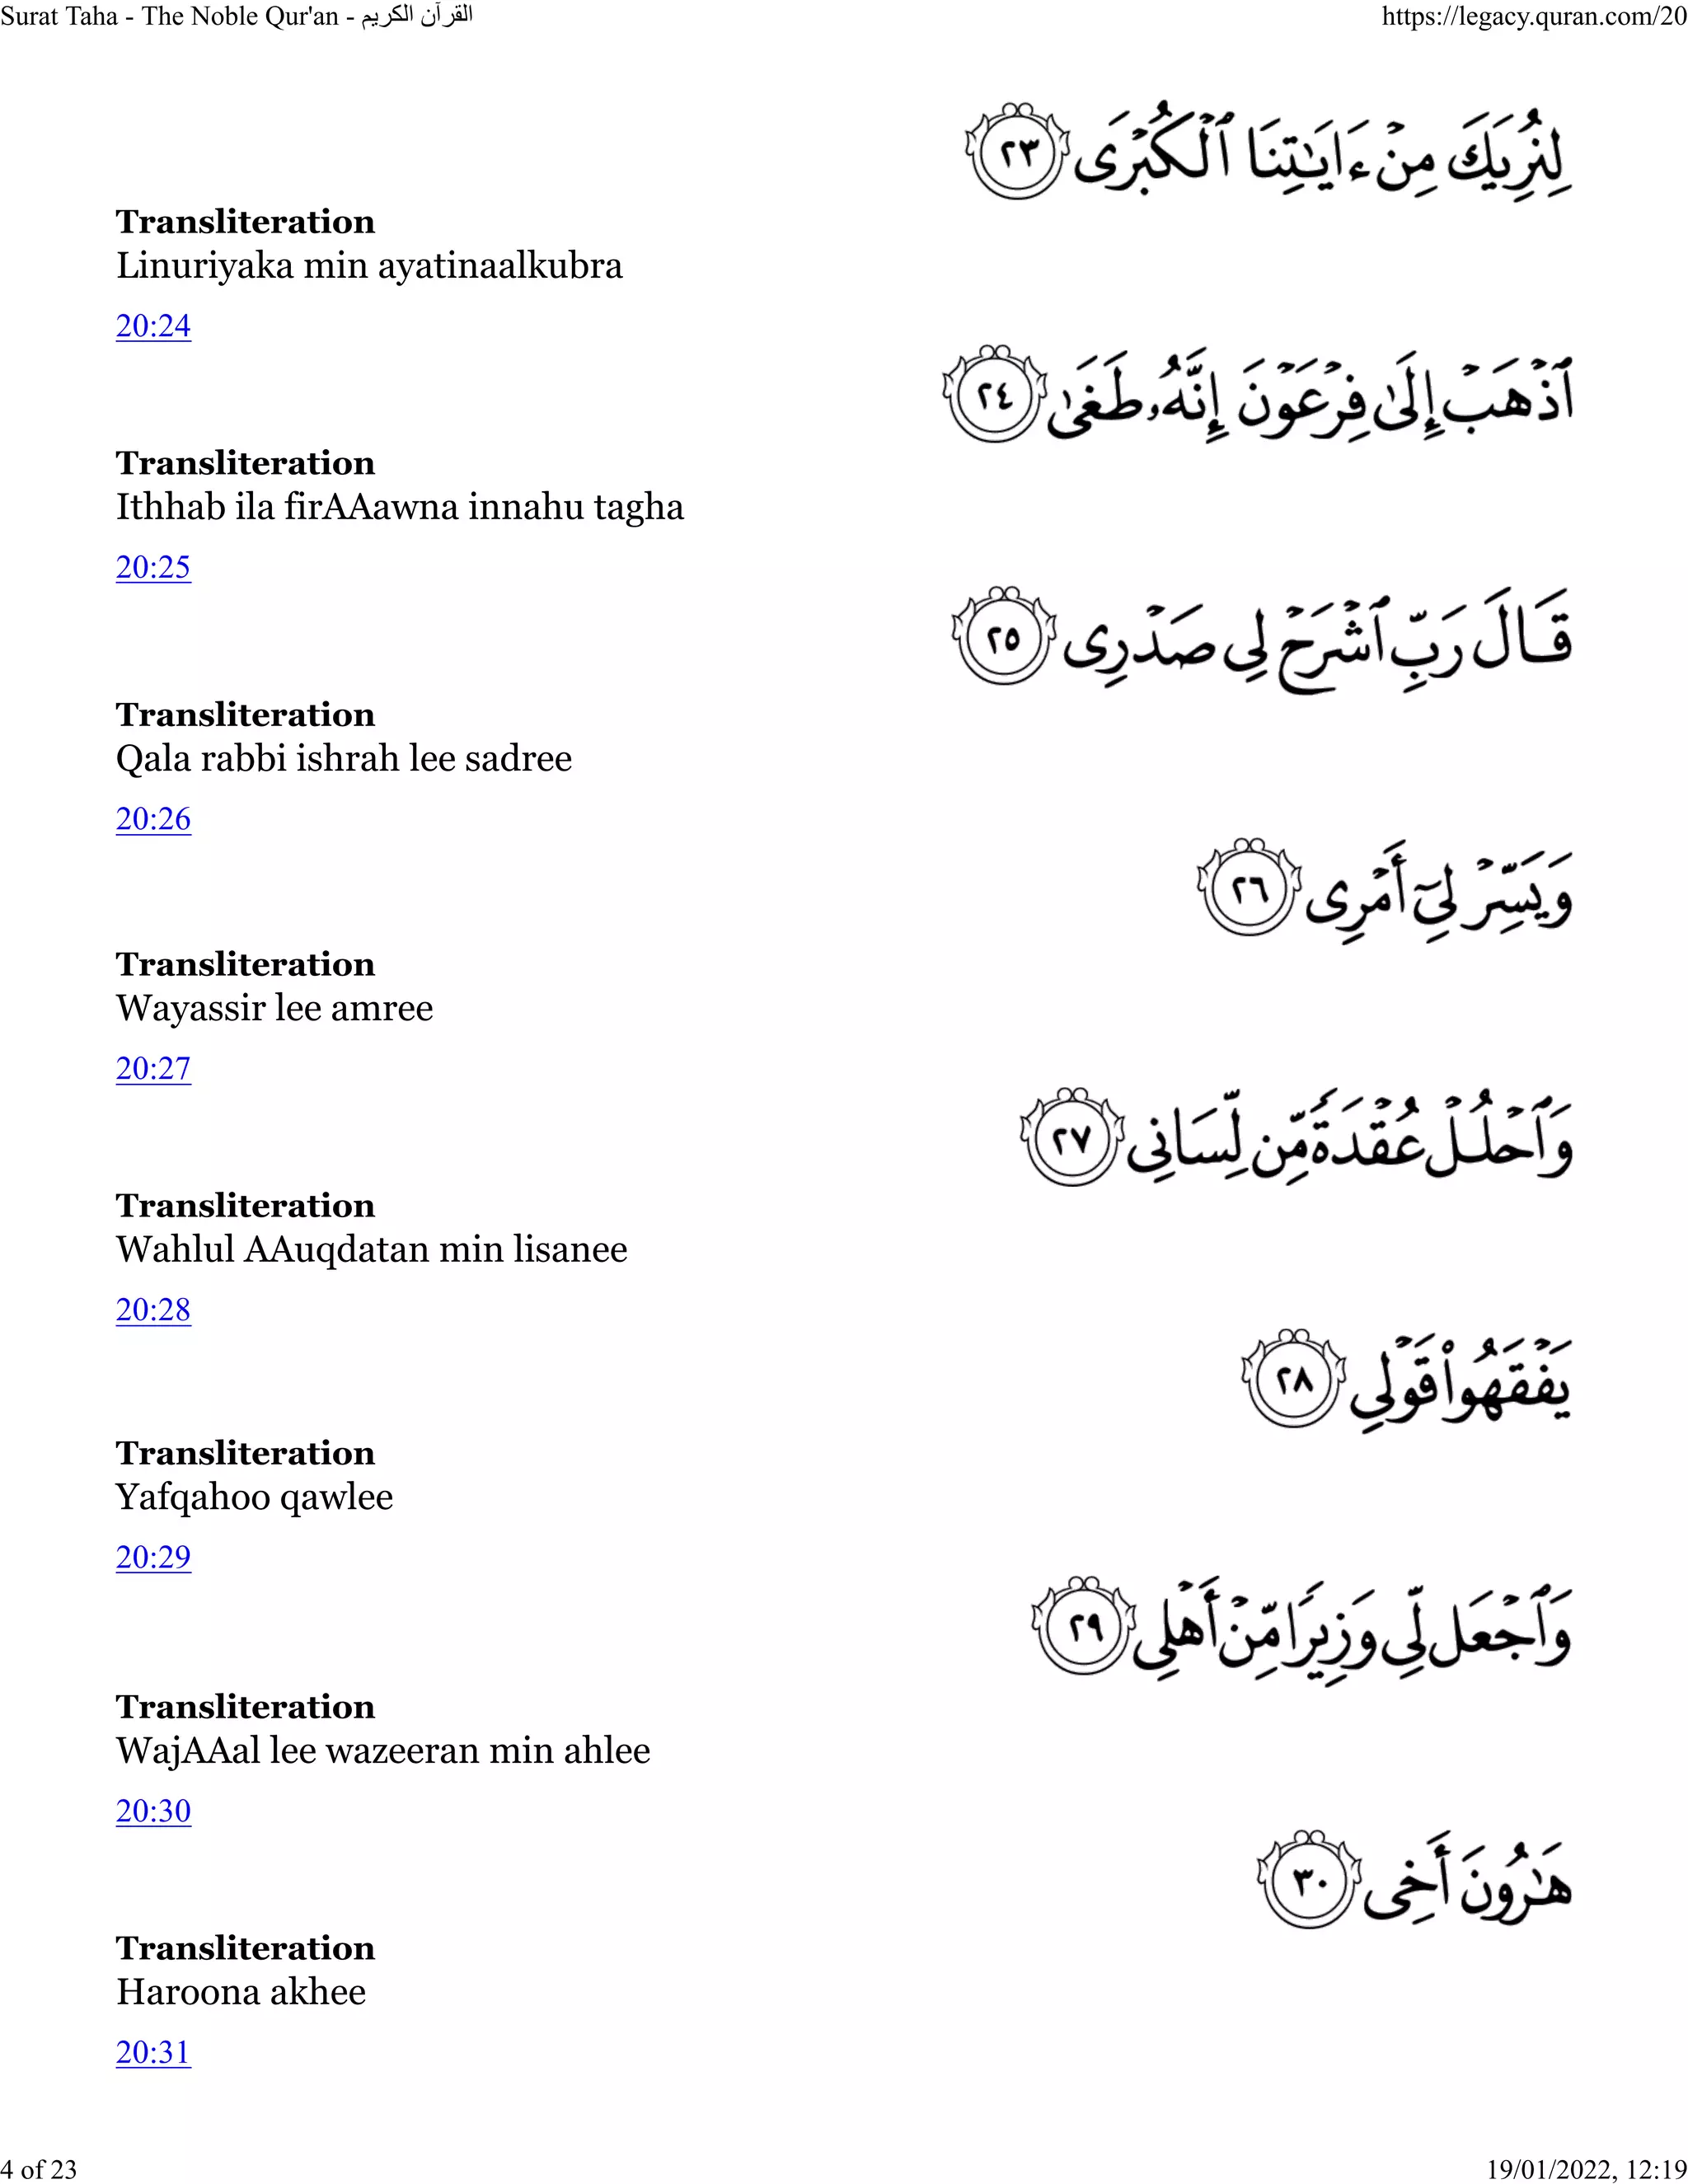 Surat Taha - The Noble Qur'an - القرآن الكريم https://legacy.quran.com/20
لِنُرِيَكَ مِنْ ءَايَـٰتِنَا ٱلْكُبْرَى ٢٣
Transliteration
Linuriyaka min ayatinaalkubra
20:24
ٱذْهَبْ إِلَىٰ فِرْعَوْنَ إِنَّهُۥ طَغَىٰ ٢٤
Transliteration
Ithhab ila firAAawna innahu tagha
20:25
قَالَ رَبِّ ٱشْرَحْ لِى صَدْرِى ٢٥
Transliteration
Qala rabbi ishrah lee sadree
20:26
وَيَسِّرْ لِىٓ أَمْرِى ٢٦
Transliteration
Wayassir lee amree
20:27
وَٱحْلُلْ عُقْدَةً مِّن لِّسَانِى ٢٧
Transliteration
Wahlul AAuqdatan min lisanee
20:28
يَفْقَهُوا۟ قَوْلِى ٢٨
Transliteration
Yafqahoo qawlee
20:29
وَٱجْعَل لِّى وَزِيرًا مِّنْ أَهْلِى ٢٩
Transliteration
WajAAal lee wazeeran min ahlee
20:30
هَـٰرُونَ أَخِى ٣٠
Transliteration
Haroona akhee
20:31
4 of 23 19/01/2022, 12:19